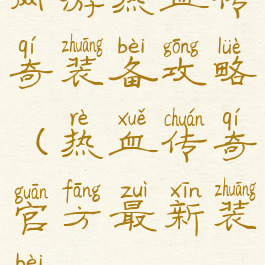 热血传
qí zhuāng bèi gōng lüè
奇装备攻略
rè xuě chuán qí
(热血传奇
guān fāng zuì xīn zhuāng
官方最新装
bèi